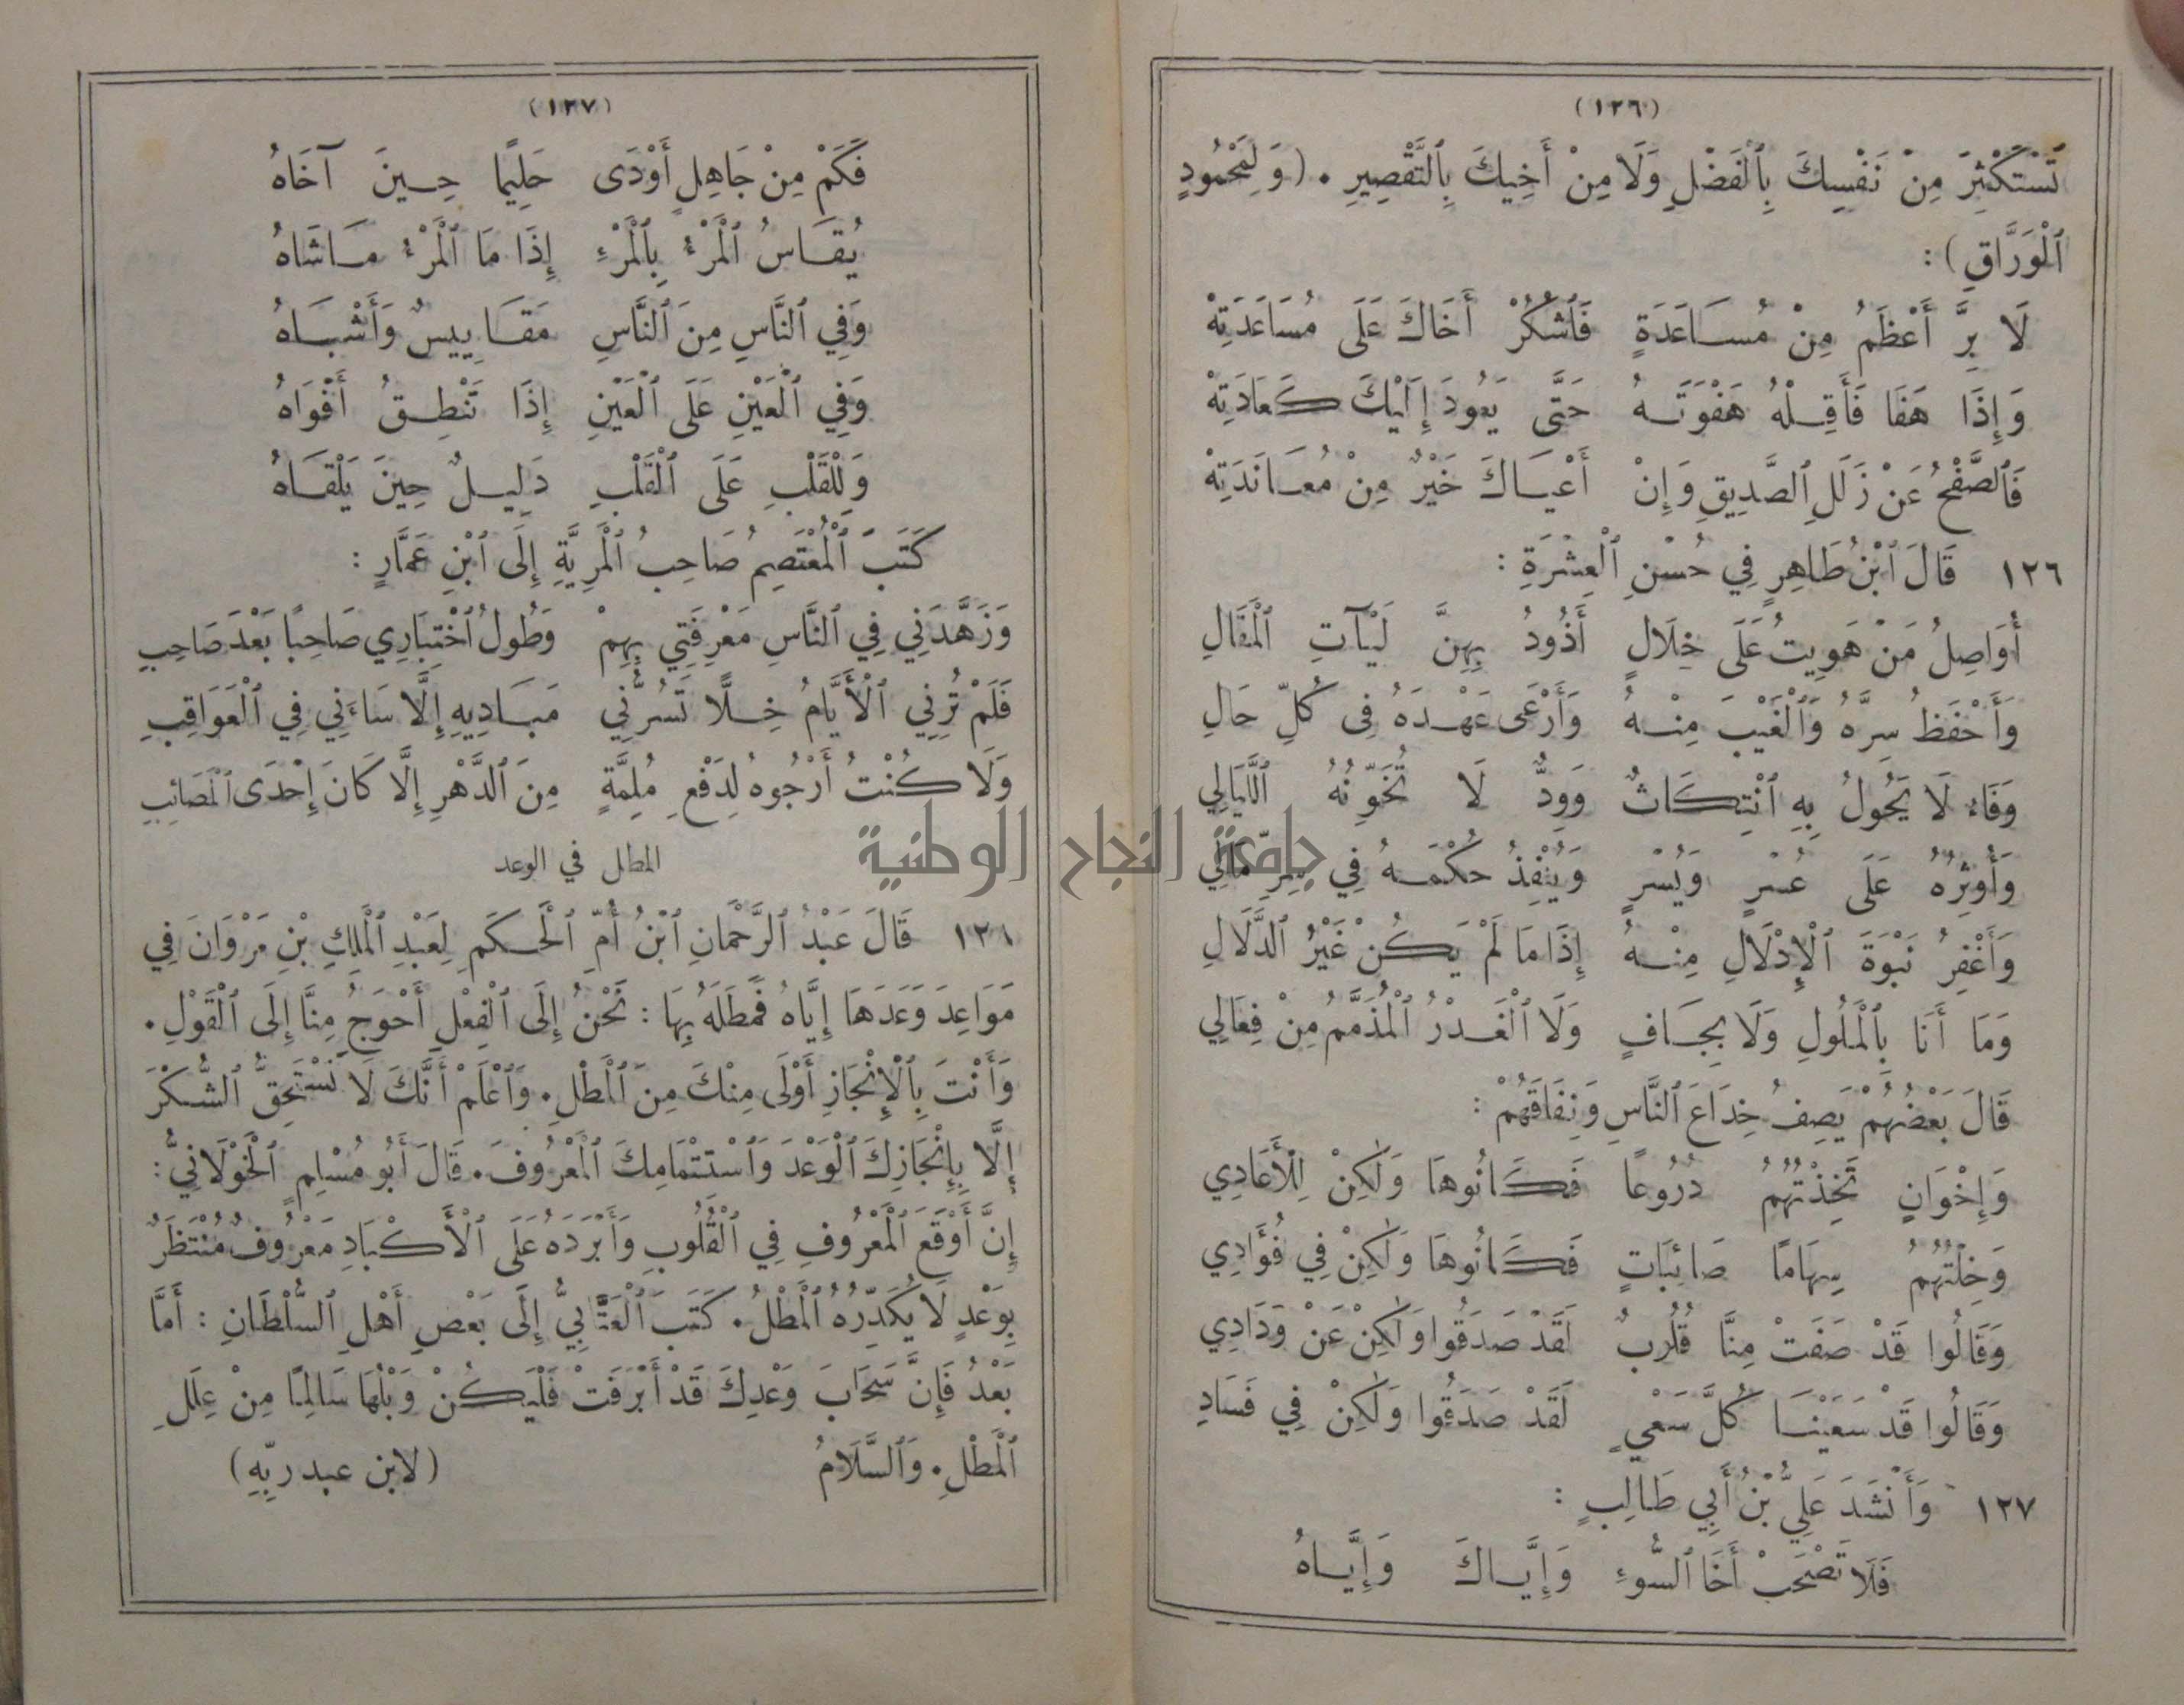 (١٢٦)
تَسْتَكْثِرَ مِنْ نَفْسِكَ بِٱلْفَضْلِ وَلَا مِنْ أَخِيكَ بِٱلتَّقْصِيرِ. (وَلِمَحْمُودٍ
ٱلْوَرَّاقِ) :
لَا بِرَّ أَعْظَمُ مِنْ مُسَاعَدَةٍ فَٱشْكُرْ أَخَاكَ عَلَى مُسَاعَدَتِهْ
وَإِذَا هَفَا فَأَقِلْهُ هَفْوَتَهُ حَتَّى يَعُودَ إِلَيْكَ كَعَادَتِهْ
فَٱلصَّفْحُ عَنْ زَلَلِ ٱلصَّدِيقِ وَإِنْ أَعْيَاكَ خَيْرٌ مِنْ مُعَانَدَتِهْ
١٢٦ قَالَ ٱبْنُ طَاهِرٍ فِي حُسْنِ ٱلْعِشْرَةِ :
أُوَاصِلُ مَنْ هَوِيتُ عَلَى خِلَالٍ أَذُودُ بِهِنَّ لَيَّاتِ ٱلْمَقَالِ
وَأَحْفَظُ سِرَّهُ وَٱلْغَيْبَ مِنْهُ وَأَرْعَى عَهْدَهُ فِي كُلِّ حَالِ
وَفَاءٌ لَا يَحُولُ بِهِ ٱنْتِكَاثٌ وَوِدٌّ لَا تُخَوِّنُهُ ٱللَّيَالِي
وَأُوثِرُهُ عَلَى عُسْرٍ وَيُسْرٍ وَيُنْفِذُ حُكْمَهُ فِي سِرِّ مَالِي
وَأَغْفِرُ نَبْوَةَ ٱلْإِدْلَالِ مِنْهُ إِذَا مَا لَمْ يَكُنْ غَيْرُ ٱلدَّلَالِ
وَمَا أَنَا بِٱلْمَلُولِ وَلَا بِجَافٍ وَلَا ٱلْغَدْرُ ٱلْمُذَمَّمُ مِنْ فِعَالِي
قَالَ بَعْضُهُمْ يَصِفُ خِدَاعَ ٱلنَّاسِ وَنِفَاقَهُمْ :
وَإِخْوَانٍ تَخِذْتُهُمُ دُرُوعًا فَكَانُوهَا وَلٰكِنْ لِلْأَعَادِي
وَخِلْتُهُمُ سِهَامًا صَائِبَاتٍ فَكَانُوهَا وَلٰكِنْ فِي فُؤَادِي
وَقَالُوا قَدْ صَفَتْ مِنَّا قُلُوبٌ لَقَدْ صَدَقُوا وَلٰكِنْ عَنْ وَدَادِي
وَقَالُوا قَدْ سَعَيْنَا كُلَّ سَعْيٍ لَقَدْ صَدَقُوا وَلٰكِنْ فِي فَسَادِ
١٢٧ وَأَنْشَدَ عَلِيُّ بْنُ أَبِي طَالِبٍ :
فَلَا تَصْحَبْ أَخَا ٱلسُّوءِ وَإِيَّاكَ وَإِيَّاهُ
(١٢٧)
فَكَمْ مِنْ جَاهِلٍ أَوْدَى حَلِيمًا حِينَ آخَاهُ
يُقَاسُ ٱلْمَرْءُ بِٱلْمَرْءِ إِذَا مَا ٱلْمَرْءُ مَاشَاهُ
وَفِي ٱلنَّاسِ مِنَ ٱلنَّاسِ مَقَايِيسٌ وَأَشْبَاهُ
وَفِي ٱلْعَيْنِ عَلَى ٱلْعَيْنِ إِذَا تَنْطِقُ أَفْوَاهُ
وَلِلْقَلْبِ عَلَى ٱلْقَلْبِ دَلِيلٌ حِينَ يَلْقَاهُ
كَتَبَ ٱلْمُعْتَصِمُ صَاحِبُ ٱلْمَرِيَّةِ إِلَى ٱبْنِ عَمَّارٍ :
وَزَهَّدَنِي فِي ٱلنَّاسِ مَعْرِفَتِي بِهِمْ وَطُولُ ٱخْتِبَارِي صَاحِبًا بَعْدَ صَاحِبِ
فَلَمْ تُرِنِي ٱلْأَيَّامُ خِلًّا تَسُرُّنِي مَبَادِيهِ إِلَّا سَاءَنِي فِي ٱلْعَوَاقِبِ
وَلَا كُنْتُ أَرْجُوهُ لِدَفْعِ مُلِمَّةٍ مِنَ ٱلدَّهْرِ إِلَّا كَانَ إِحْدَى ٱلْمَصَائِبِ
المطل في الوعد
١٢٨ قَالَ عَبْدُ ٱلرَّحْمَانِ ٱبْنُ أُمِّ ٱلْحَكَمِ لِعَبْدِ ٱلْمَلِكِ بْنِ مَرْوَانَ فِي
مَوَاعِدَ وَعَدَهَا إِيَّاهُ فَمَطَلَهُ بِهَا : نَحْنُ إِلَى ٱلْفِعْلِ أَحْوَجُ مِنَّا إِلَى ٱلْقَوْلِ.
وَأَنْتَ بِٱلْإِنْجَازِ أَوْلَى مِنْكَ مِنَ ٱلْمَطْلِ. وَٱعْلَمْ أَنَّكَ لَا تَسْتَحِقُّ ٱلشُّكْرَ
إِلَّا بِإِنْجَازِكَ ٱلْوَعْدَ وَٱسْتِتْمَامِكَ ٱلْمَعْرُوفَ. قَالَ أَبُو مُسْلِمٍ ٱلْخَوْلَانِيُّ :
إِنَّ أَوْقَعَ ٱلْمَعْرُوفِ فِي ٱلْقُلُوبِ وَأَبْرَدَهُ عَلَى ٱلْأَكْبَادِ مَعْرُوفٌ مُنْتَظَرٌ
بِوَعْدٍ لَا يُكَدِّرُهُ ٱلْمَطْلُ. كَتَبَ ٱلْعَتَّابِيُّ إِلَى بَعْضِ أَهْلِ ٱلسُّلْطَانِ : أَمَّا
بَعْدُ فَإِنَّ سَحَابَ وَعْدِكَ قَدْ أَبْرَقَتْ فَلْيَكُنْ وَبْلُهَا سَالِمًا مِنْ عِلَلِ
ٱلْمَطْلِ. وَٱلسَّلَامُ (لابن عبد ربّهِ)
جامعة النجاح الوطنية